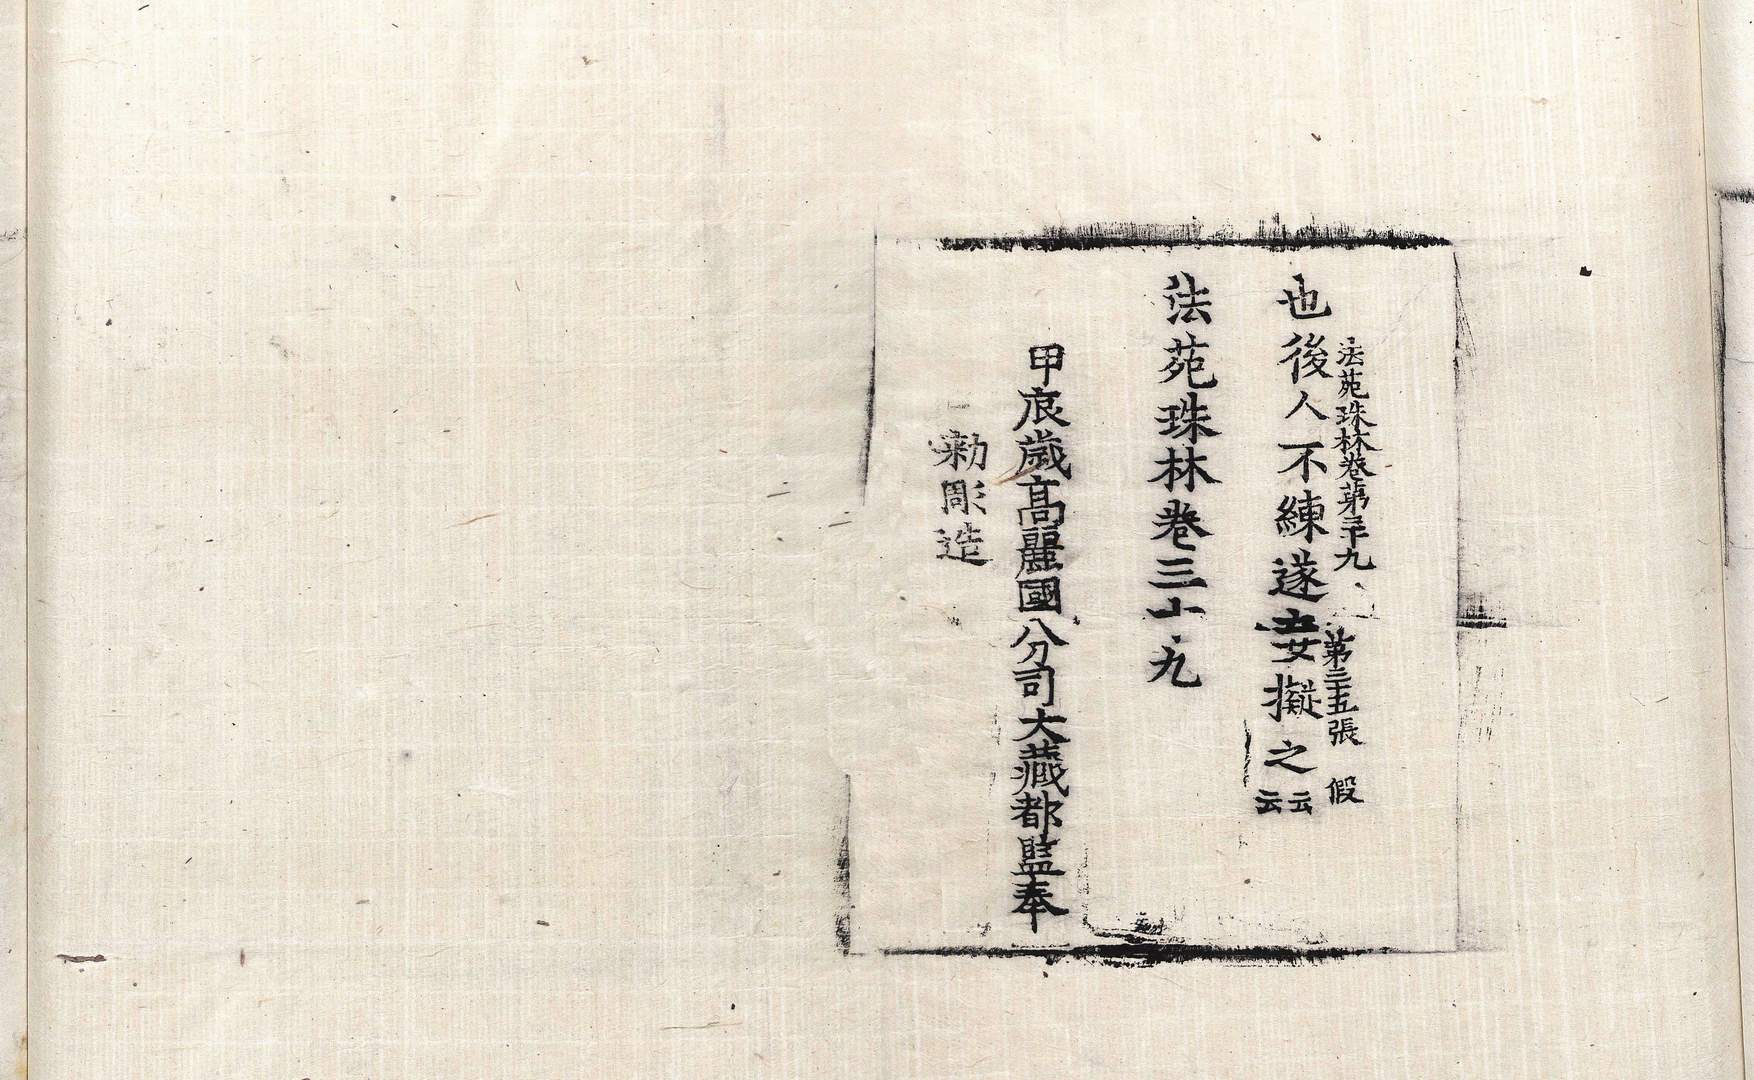 法苑珠林卷第三十九 第三十五張 假
也後人不練遂妄擬之云云
法苑珠林卷三十九
甲辰歲高麗國分司大藏都監奉
勅彫造